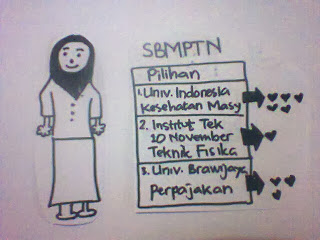 SBMPTN
Pilihan
1. Univ. Indonesia
Kesehatan Masy
2. Institut Tek
10 November
Teknik Fisika
3. Univ. Brawijaya
Perpajakan